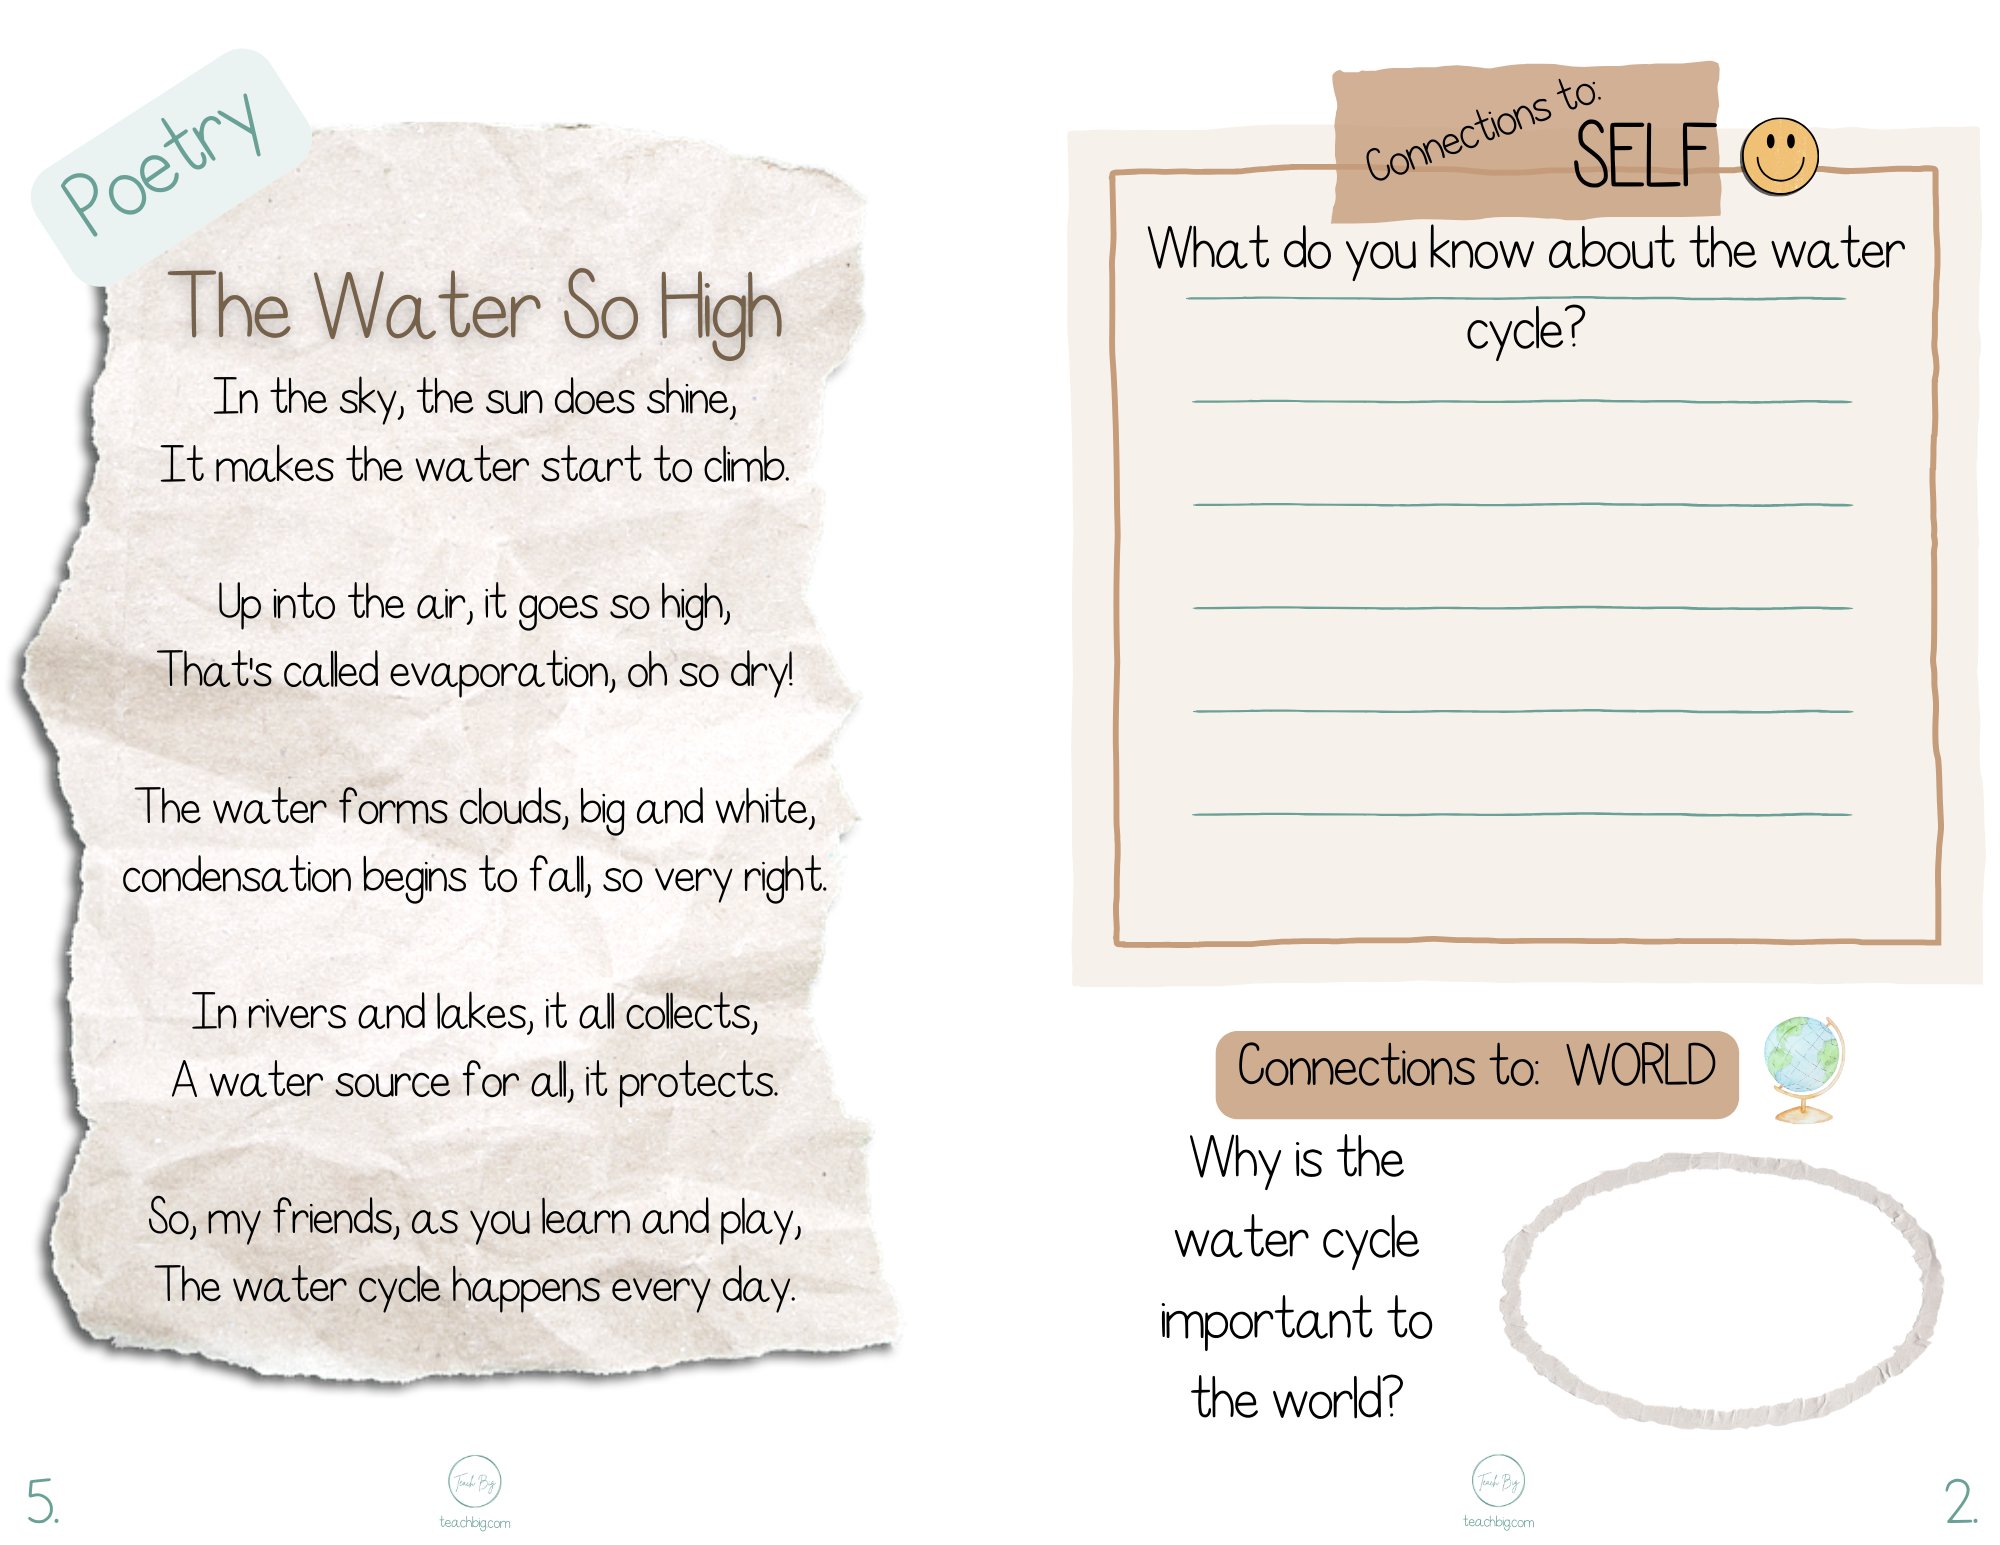 Poetry
The Water So High
In the sky, the sun does shine,
It makes the water start to climb.
Up into the air, it goes so high,
That's called evaporation, oh so dry!
The water forms clouds, big and white,
condensation begins to fall, so very right.
In rivers and lakes, it all collects,
A water source for all, it protects.
So, my friends, as you learn and play,
The water cycle happens every day.
5.
Teach Big
teachbig.com
Connections to:
SELF
What do you know about the water
cycle?
Connections to: WORLD
Why is the
water cycle
important to
the world?
Teach Big
teachbig.com
2.